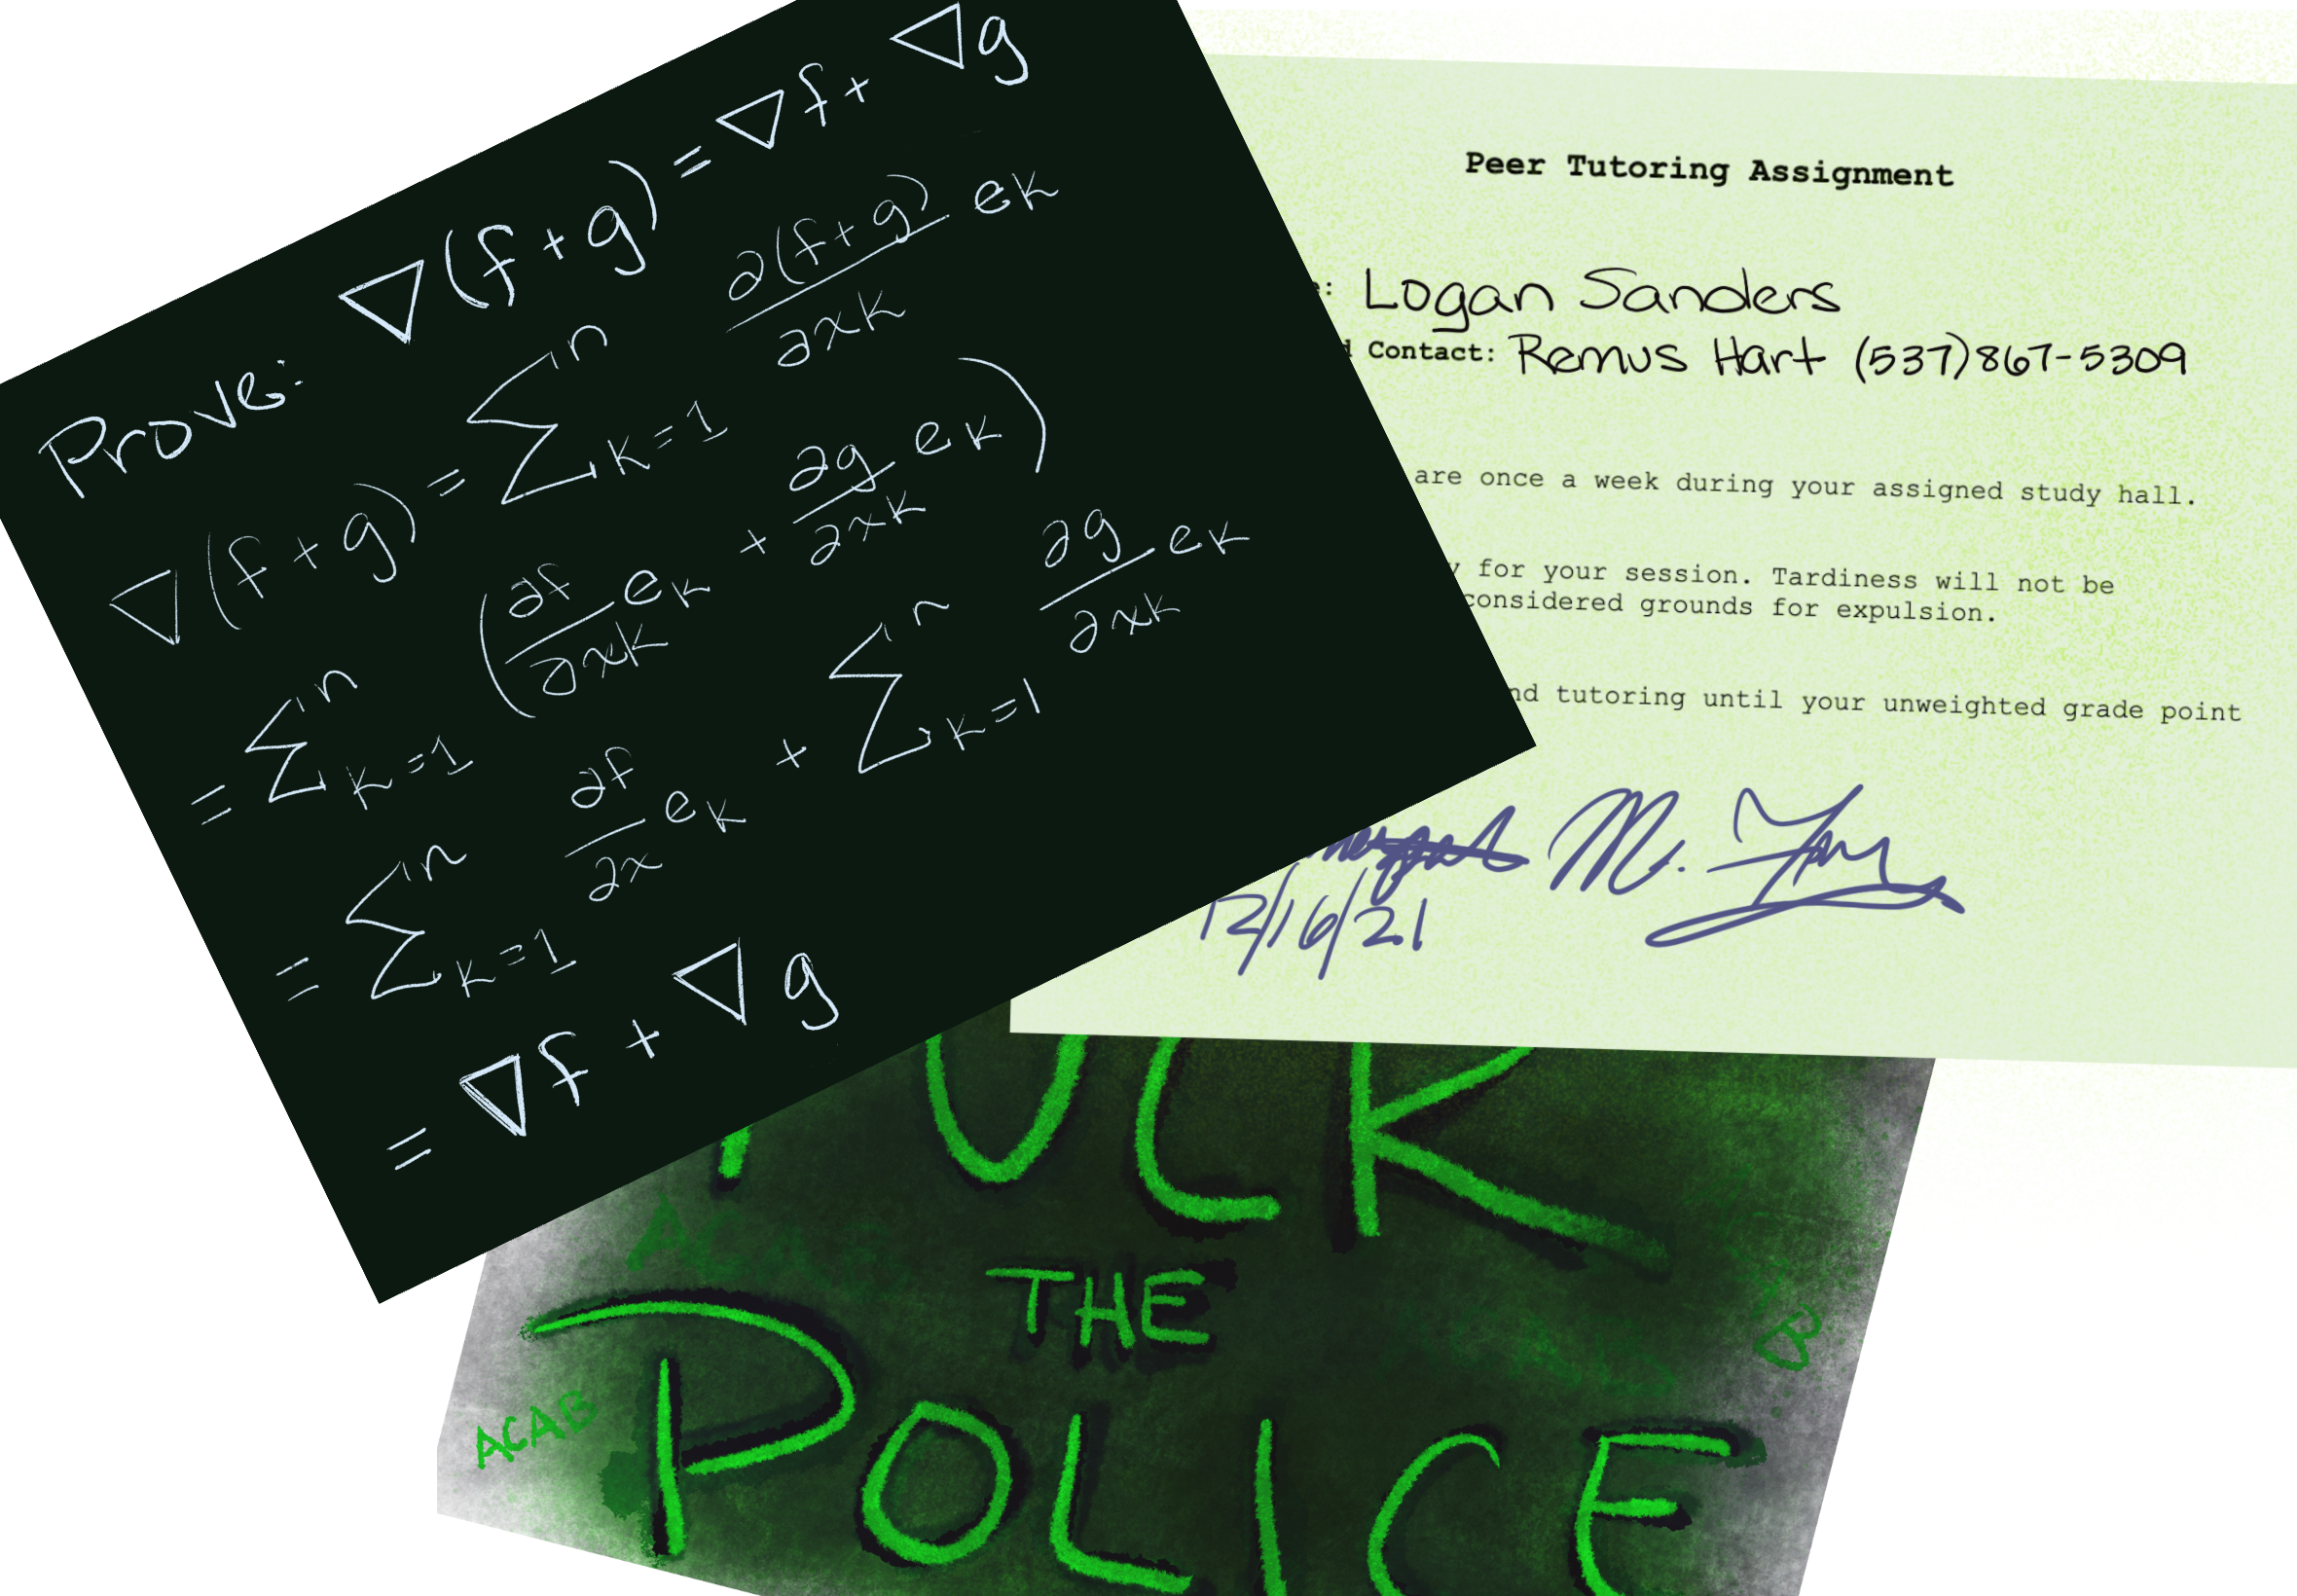 Prove: ∇(f+g) = ∇f + ∇g
∇(f+g) = Σⁿ k=1 ∂(f+g)/∂xk ek
= Σⁿ k=1 (∂f/∂xk ek + ∂g/∂xk ek)
= Σⁿ k=1 ∂f/∂x ek + Σⁿ k=1 ∂g/∂xk ek
= ∇f + ∇g
Peer Tutoring Assignment
Logan Sanders
Contact: Remus Hart (537)867-5309
are once a week during your assigned study hall.
for your session. Tardiness will not be
considered grounds for expulsion.
tutoring until your unweighted grade point
12/16/21
UCK
THE
POLICE
ACAB